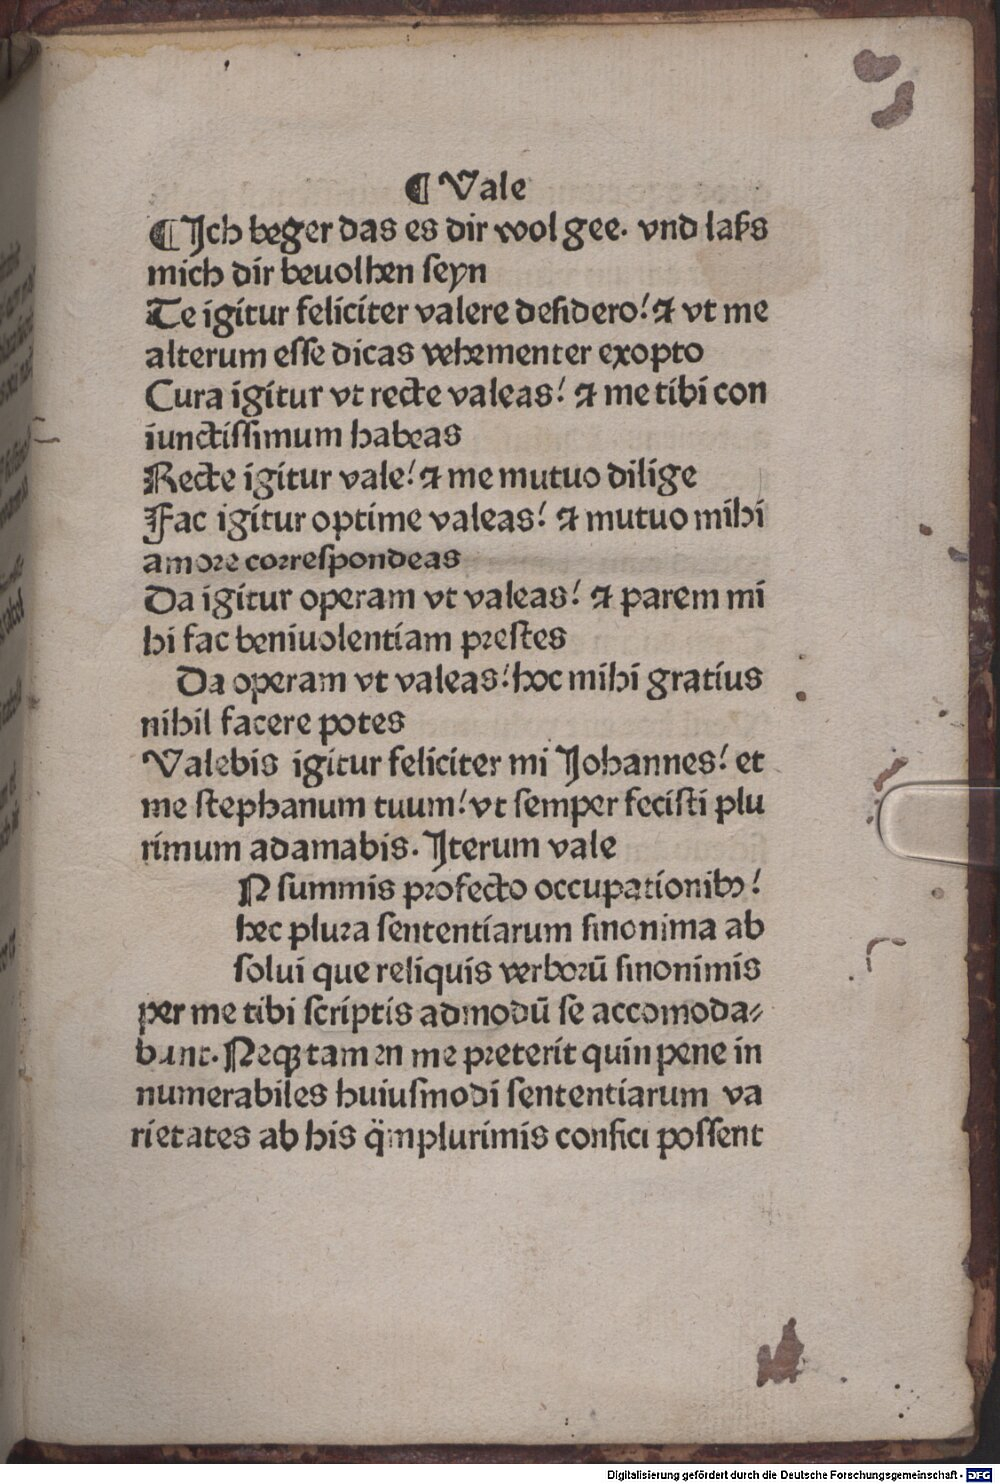 ¶ Vale
¶ Jch beger das es dir wol gee. vnd laſs
mich dir beuolhen ſeyn
Te igitur feliciter valere deſidero! ⁊ vt me
alterum eſſe dicas vehementer exopto
Cura igitur vt recte valeas! ⁊ me tibi con
iunctiſſimum habeas
Recte igitur vale! ⁊ me mutuo dilige
Fac igitur optime valeas! ⁊ mutuo mihi
amore correſpondeas
Da igitur operam vt valeas! ⁊ parem mi
hi fac beniuolentiam preſtes
Da operam vt valeas! hoc mihi gratius
nihil facere potes
Valebis igitur feliciter mi Johannes! et
me ſtephanum tuum! vt ſemper feciſti plu
rimum adamabis. Jterum vale
N ſummis profecto occupationibꝫ!
hec plura ſententiarum ſinonima ab
ſolui que reliquis verborū ſinonimis
per me tibi ſcriptis admodū ſe accomoda⸗
bunt. Neqꝫ tamen me preterit quin pene in
numerabiles huiuſmodi ſententiarum va
rietates ab his q̄mplurimis confici poſſent
Digitalisierung gefördert durch die Deutsche Forschungsgemeinschaft - DFG